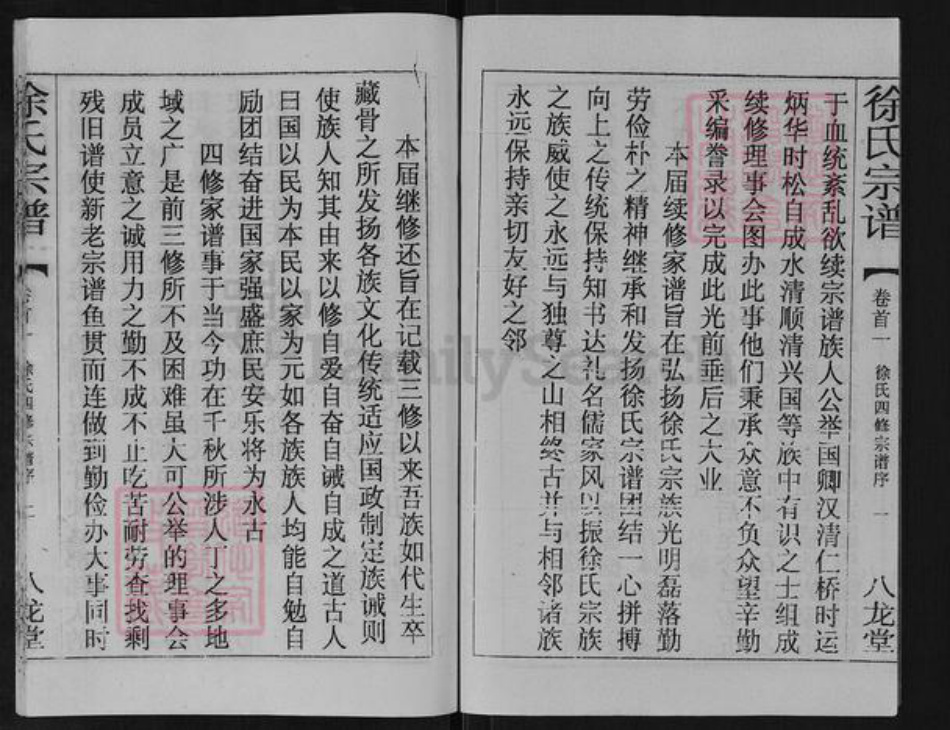 徐氏宗谱
【
卷首一 徐氏四修宗谱序 一
八龙堂
于血统紊乱欲续宗谱族人公举国卿汉清仁桥时运
炳华时松自成水清顺清兴国等族中有识之士组成
续修理事会图办此事他们秉承众意不负众望辛勤
采编誊录以完成此光前垂后之大业
本届续修家谱旨在弘扬徐氏宗族光明磊落勤
劳俭朴之精神继承和发扬徐氏宗谱团结一心拼搏
向上之传统保持知书达礼名儒家风以振徐氏宗族
之族威使之永远与独尊之山相终古并与相邻诸族
永远保持亲切友好之邻
本届继修还旨在记载三修以来吾族如代生卒
藏骨之所发扬各族文化传统适应国政制定族诫则
使族人知其由来以修自爱自奋自诫自成之道古人
曰国以民为本民以家为元如各族族人均能自勉自
励团结奋进国家强盛庶民安乐将为永古
四修家谱事于当今功在千秋所涉人丁之多地
域之广是前三修所不及困难虽大可公举的理事会
成员立意之诚用力之勤不成不止吃苦耐劳查找剩
残旧谱使新老宗谱鱼贯而连做到勤俭办大事同时
徐氏宗谱
【
卷首一 徐氏四修宗谱序 二
八龙堂
FamilySearch